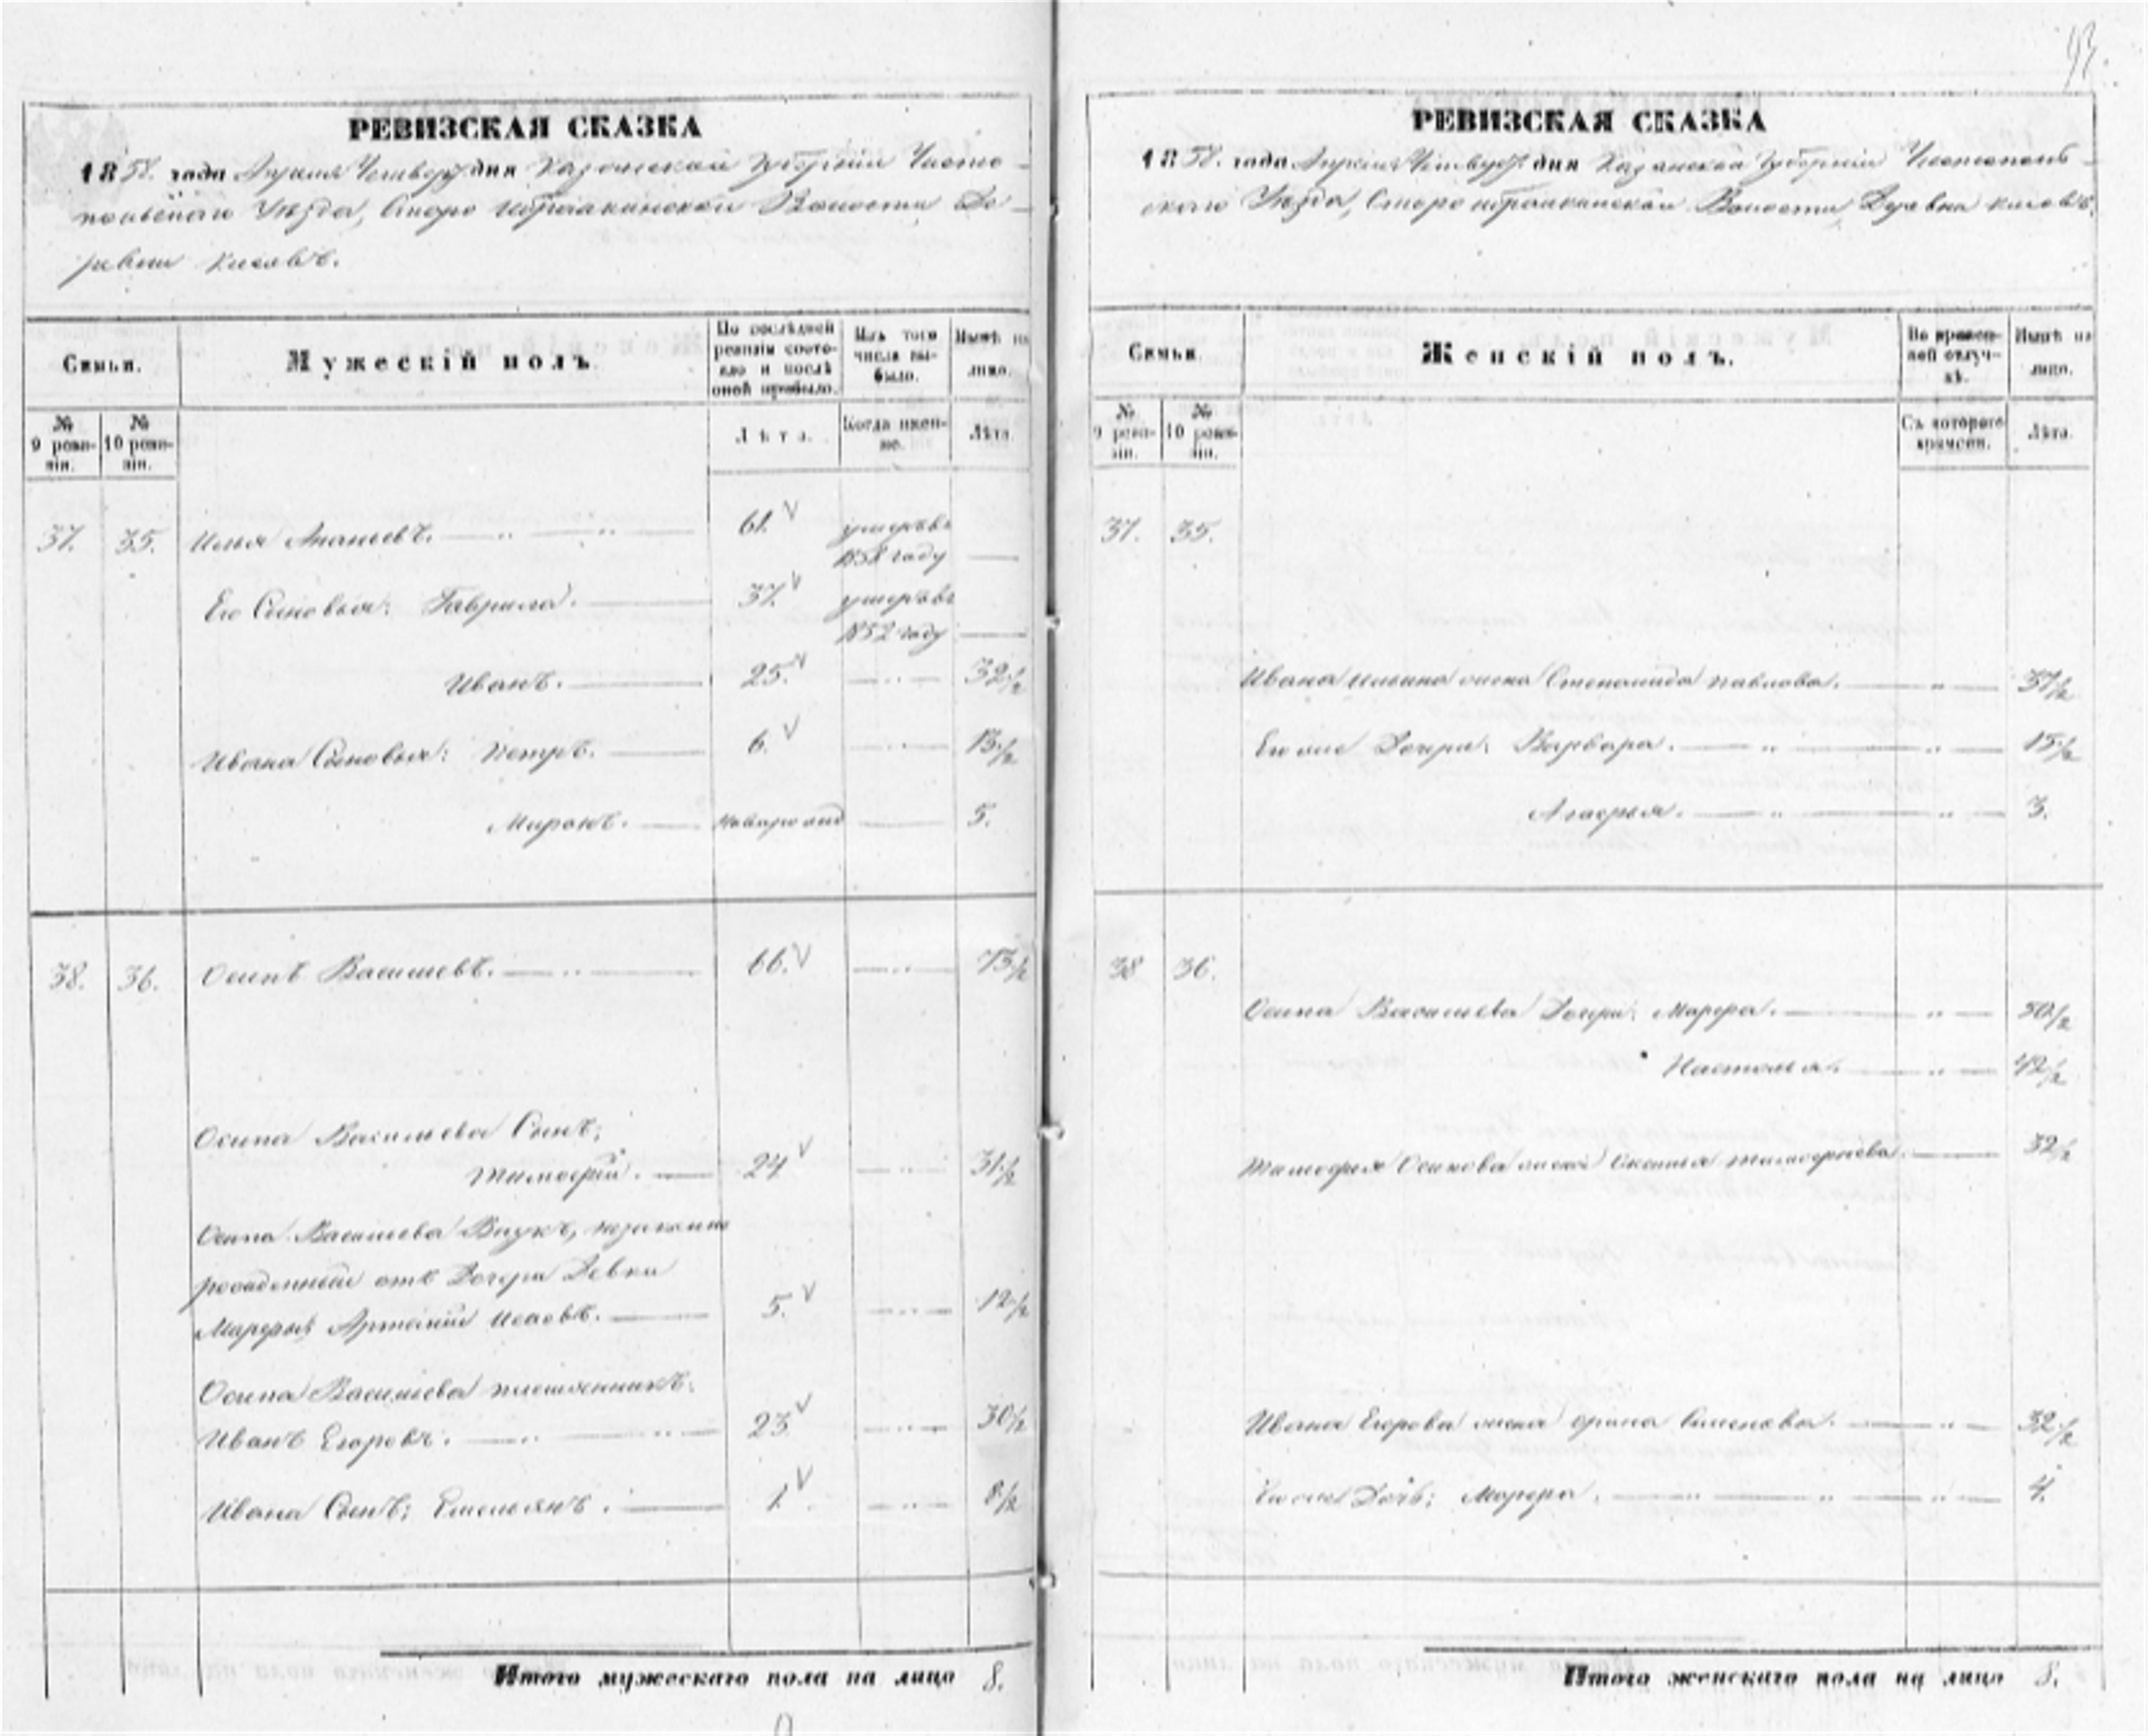 РЕВИЗСКАЯ СКАЗКА
1858. года Апреля Четверт. дня Казанской Губернiи Чисто-
польскаго Уѣзда, Старо Ибрайкинской Волости Де-
ревни Кисовъ.
Семьи.
Мужескій полъ.
По послѣдней ревизіи состояло и послѣ оной прибыло.
Изъ того числа выбыло.
Нынѣ на лицо.
№ 9 ревизіи.
№ 10 ревизіи.
Лѣта.
Когда именно.
Лѣта.
37. 35. Илья Ананьевъ. 61. умеръ въ
1858 году
Его Сыновья: Гаврила. 37. умеръ въ
1852 году
Иванъ. 25. 32 1/2
Ивана Сыновья: Петръ. 6. 13 1/2
Миронъ. новорожд 5.
38. 36. Осипъ Васильевъ. 66. 73 1/2
Осипа Васильева Сынъ;
Тимофей. 24 31 1/2
Осипа Васильева Внукъ, незаконно
рожденный отъ Дочери Девки
Марфы Артемій Исаевъ. 5. 12 1/2
Осипа Васильева племянникъ.
Иванъ Егоровъ. 23 30 1/2
Ивана Сынъ; Емельянъ. 1. 8 1/2
Итого мужескаго пола на лицо 8.
93.
РЕВИЗСКАЯ СКАЗКА
1858. года Апреля Четверт. дня Казанской Губернiи Чистополь-
скаго Уѣзда, Старо Ибрайкинской Волости, Деревни Кисовъ.
Семьи.
Женскій полъ.
Во временной отлучкѣ.
Нынѣ на лицо.
№ 9 ревизіи.
№ 10 ревизіи.
Съ котораго времени.
Лѣта.
37. 35.
Ивана Ильина жена Степанида Павлова. 37 1/2
Его же Дочери: Варвара. 15 1/2
Агафья. 3.
38 36.
Осипа Васильева Дочери: Марфа. 50 1/2
Настасья. 42 1/2
Тимофея Осипова жена Аксинья Тимофеева. 32 1/2
Ивана Егорова жена Орина Семенова. 32 1/2
Его же Дочь; Марфа. 4.
Итого женскаго пола на лицо 8.